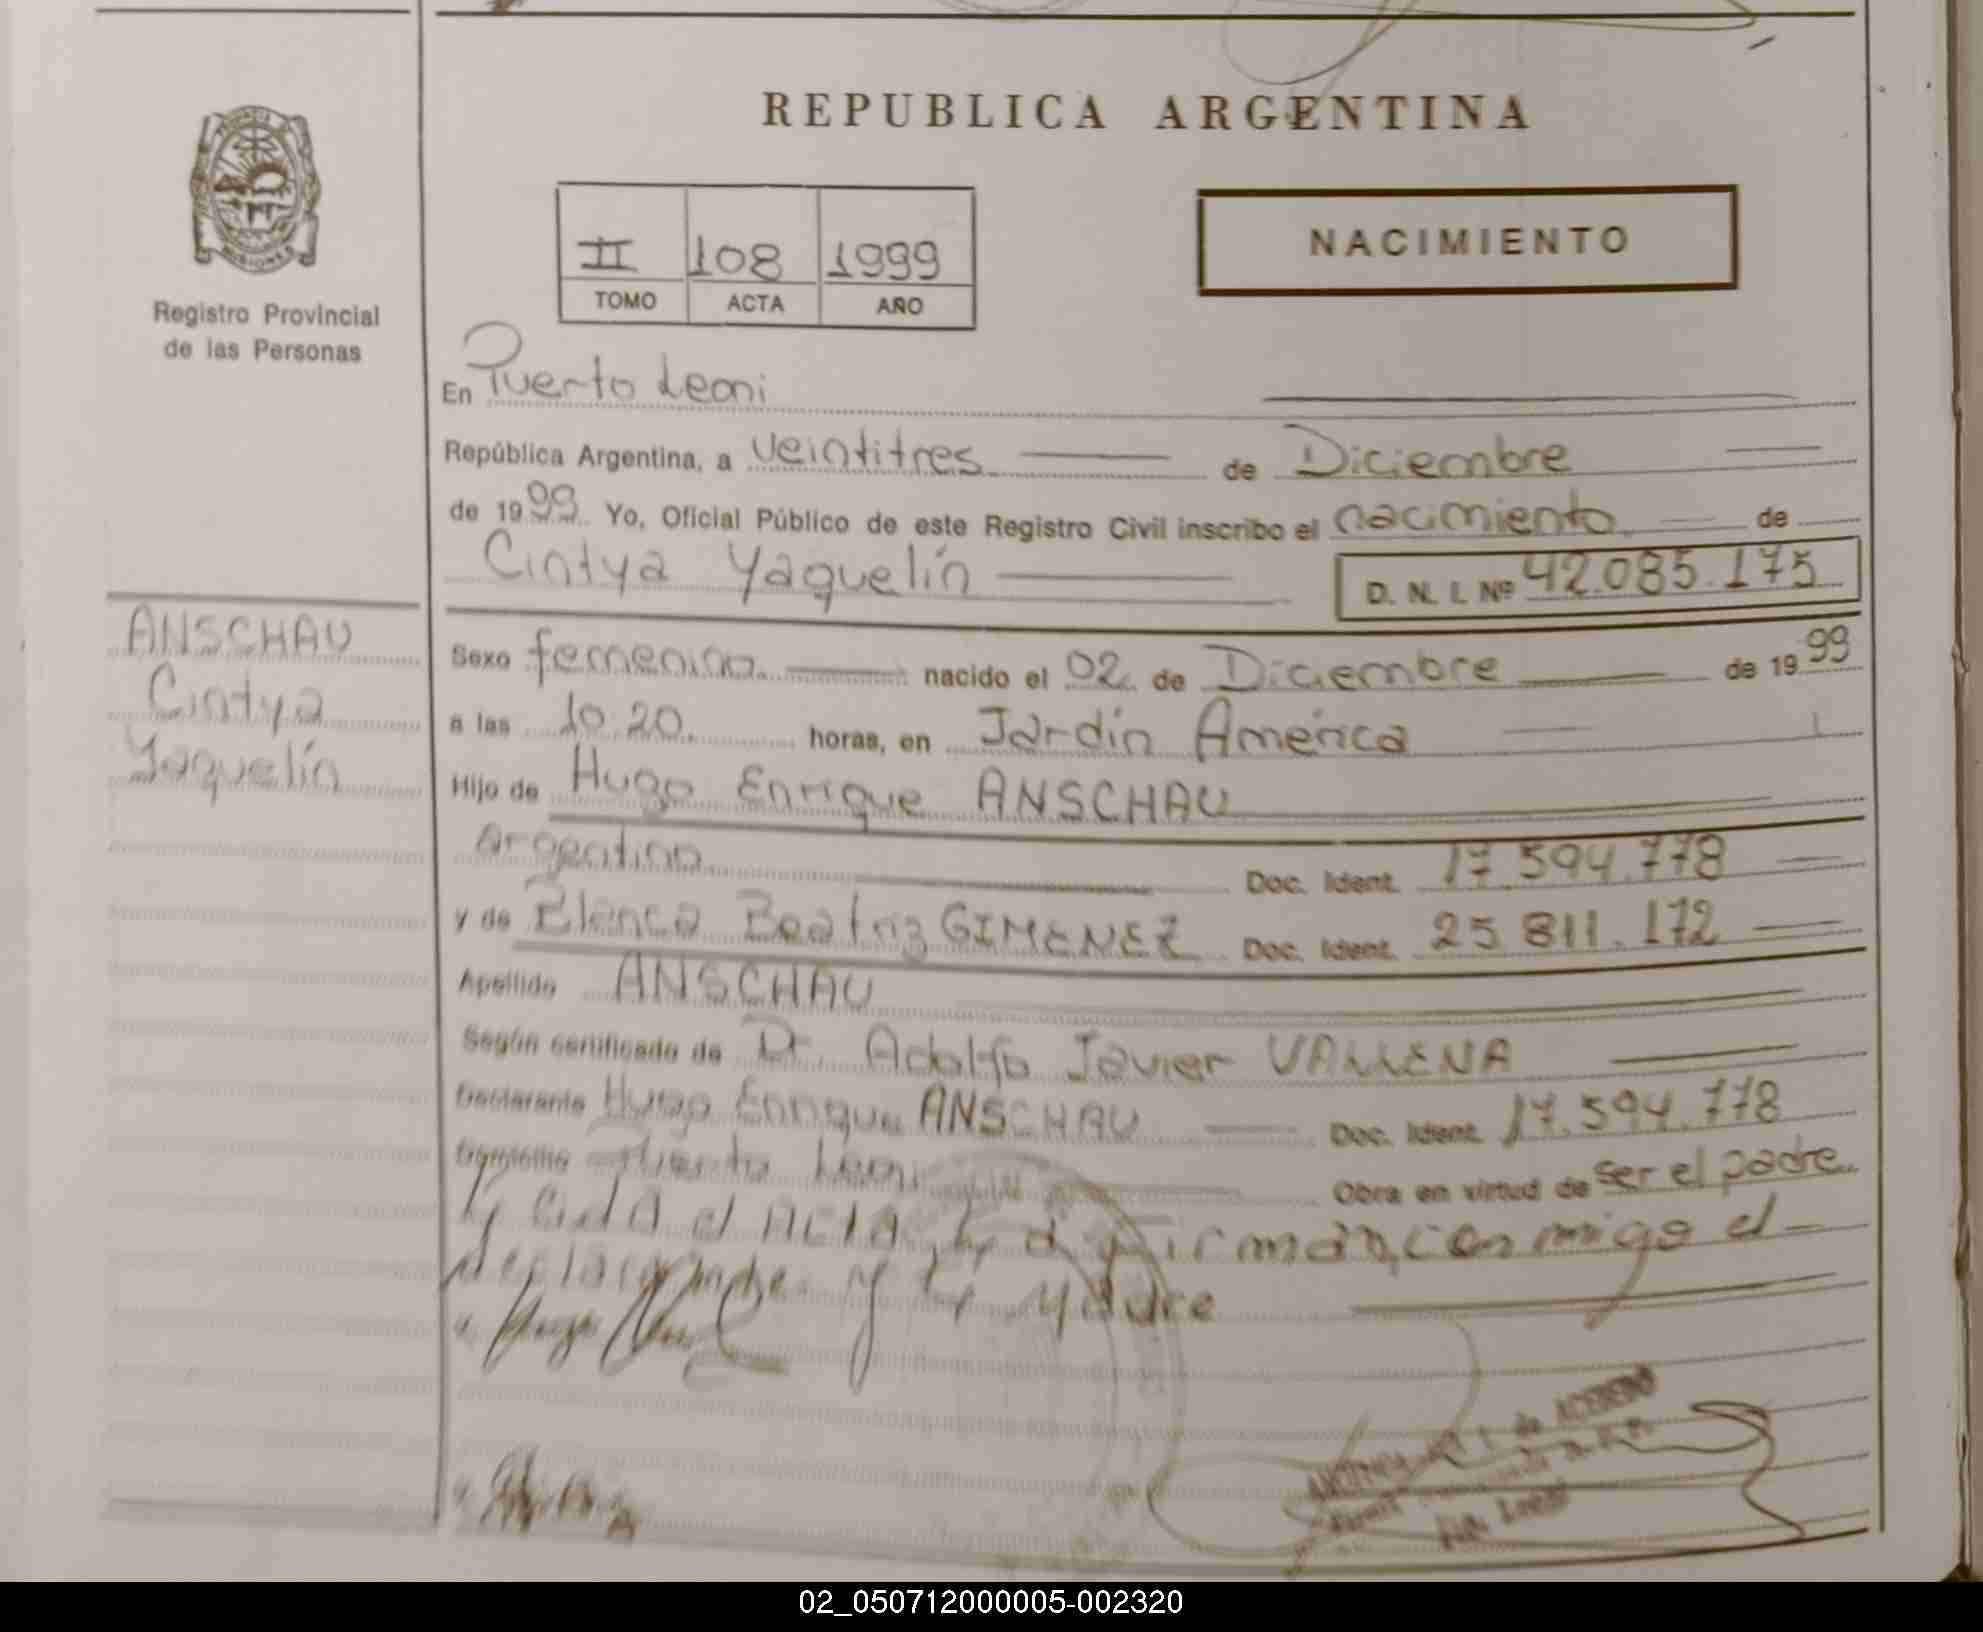 REPUBLICA ARGENTINA
PROVINCIA DE MISIONES
Registro Provincial
de las Personas
II 108 1999
TOMO ACTA AÑO
NACIMIENTO
En Puerto Leoni
República Argentina, a veintitres de Diciembre
de 1999 Yo, Oficial Público de este Registro Civil inscribo el nacimiento de
Cintya Yaquelín D. N. I. Nº 42.085.175
ANSCHAU
Cintya
Yaquelín
Sexo femenino nacido el 02 de Diciembre de 1999
a las 10.20. horas, en Jardín América
Hijo de Hugo Enrique ANSCHAU
Argentino Doc. Ident. 17.594.778
y de Blanca Beatriz GIMENEZ Doc. Ident. 25 811.172
Apellido ANSCHAU
Según certificado de Dr. Adolfo Javier
Declarante Hugo Enrique ANSCHAU Doc. Ident. 17.594.778
Domicilio Puerto Leoni Obra en virtud de ser el padre
Leida el ACTA, la firman conmigo el
declarante y la Madre
02_050712000005-002320